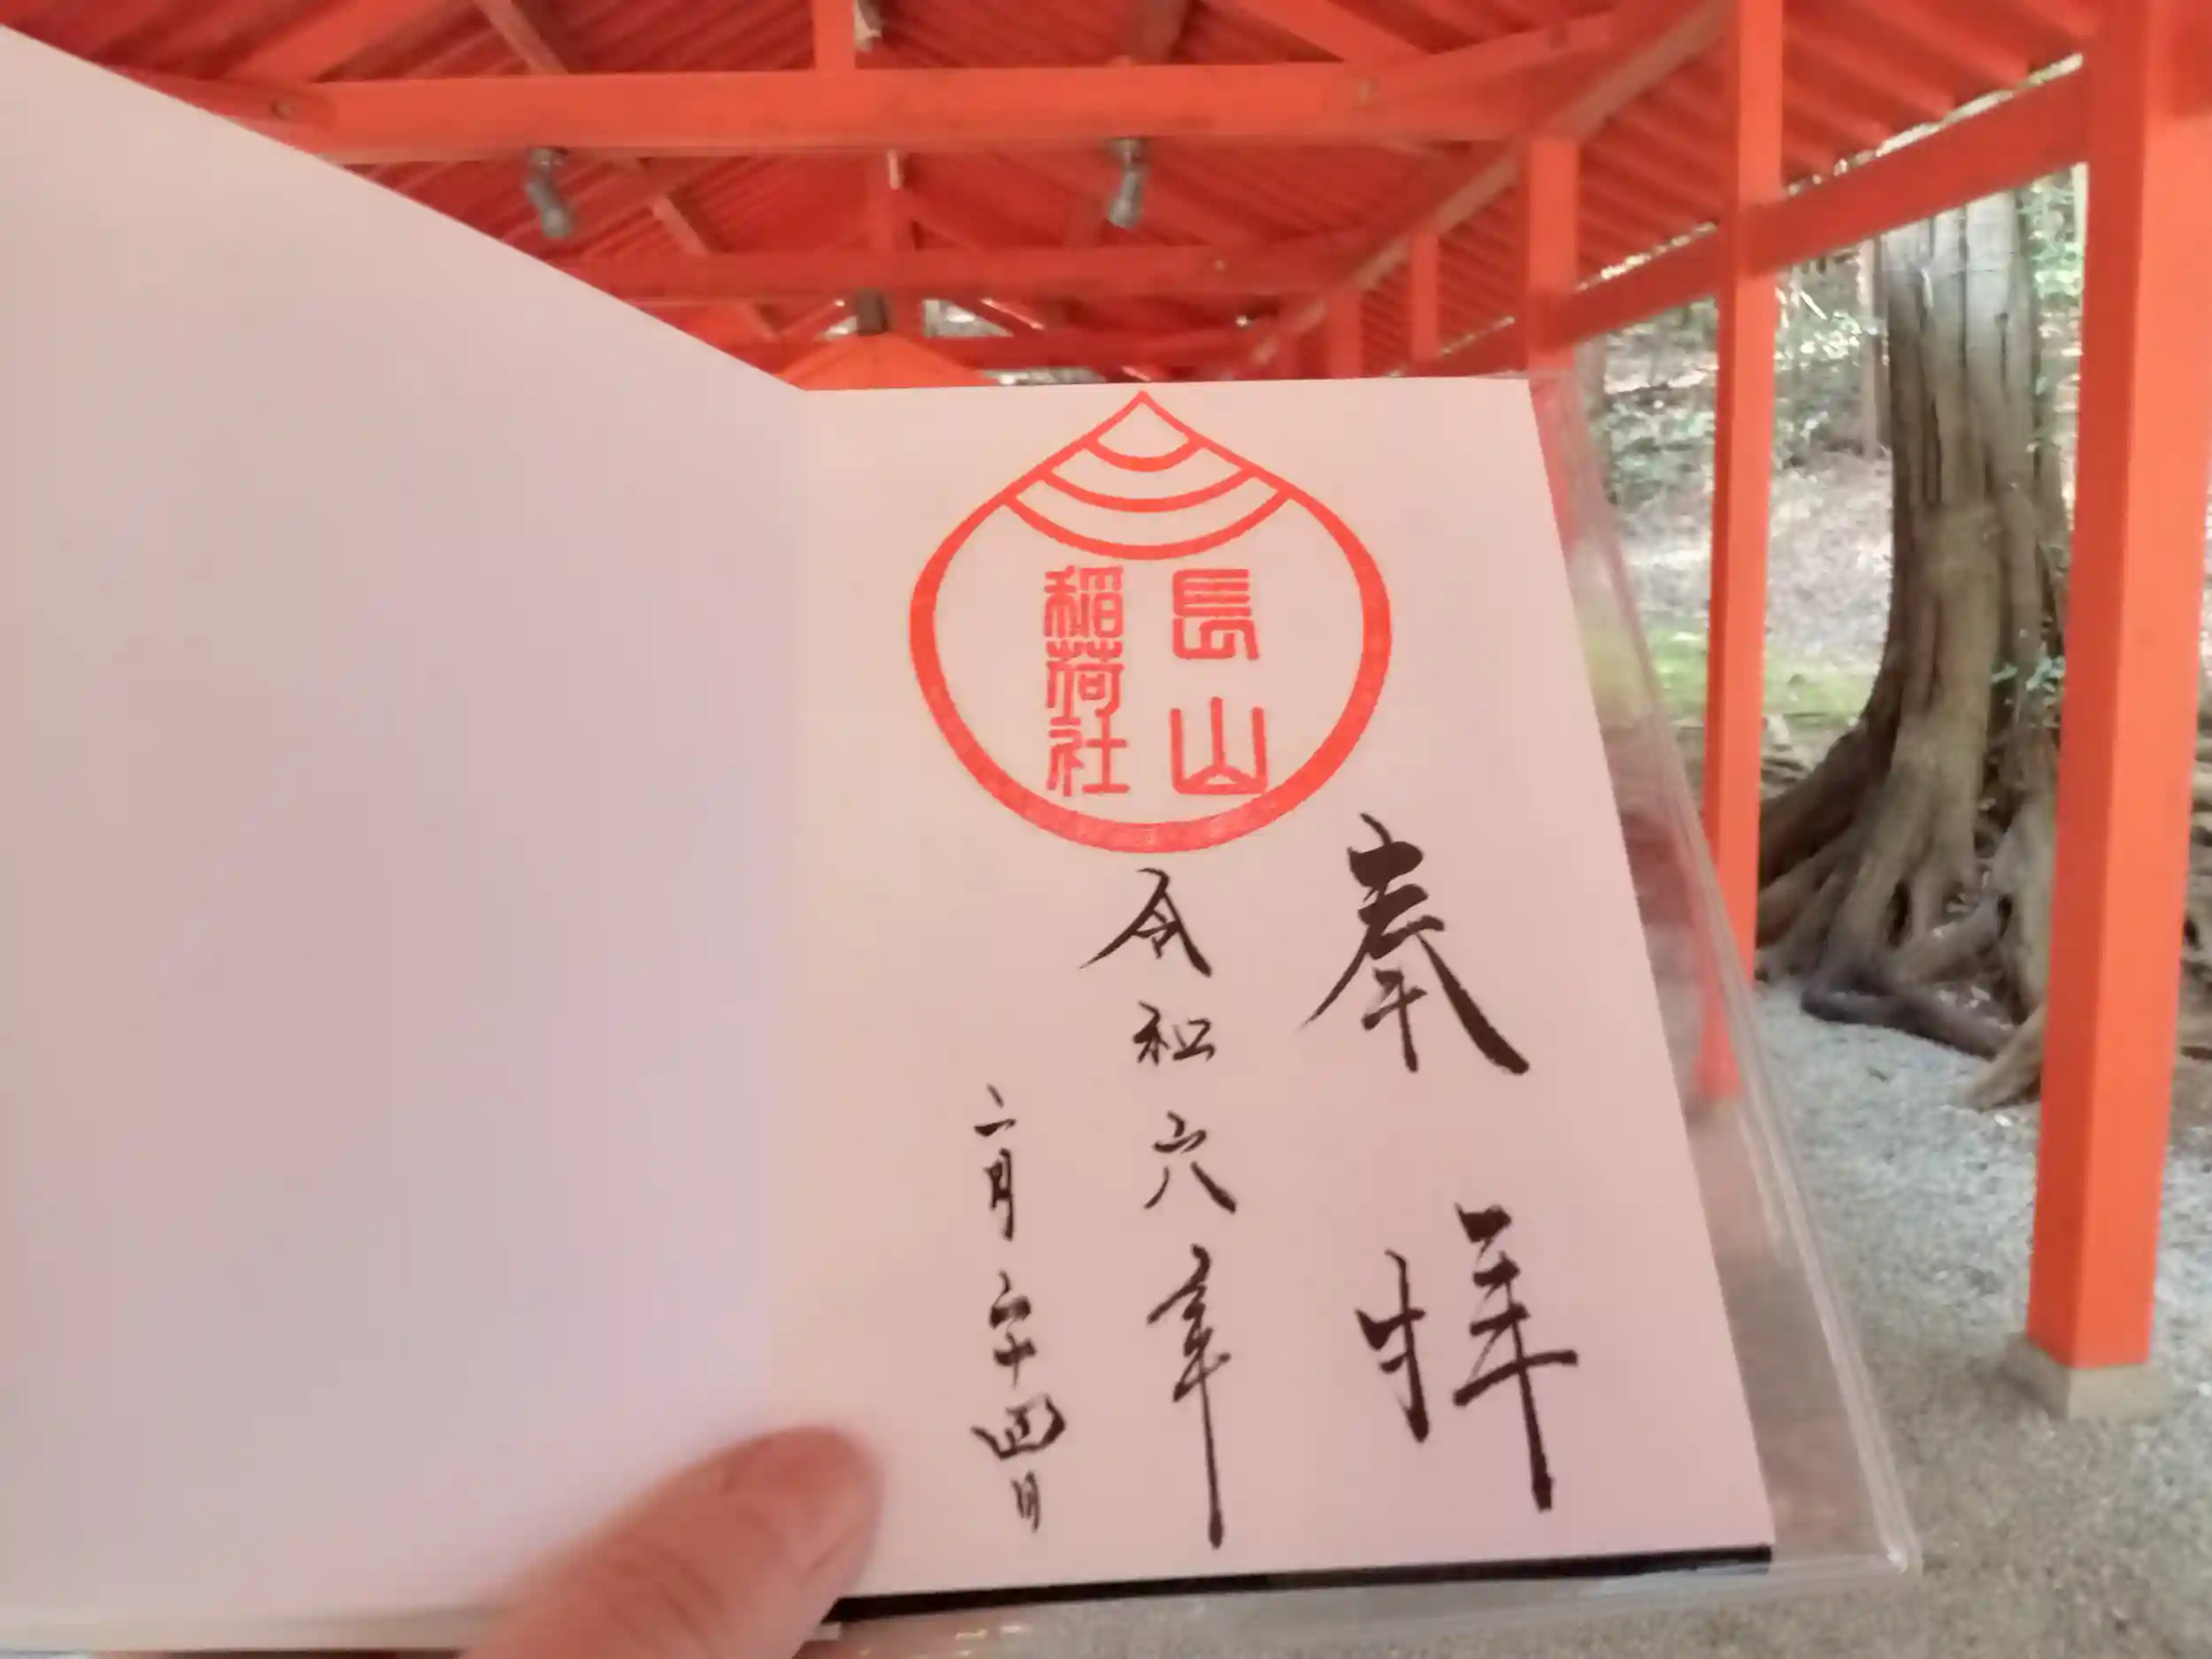 長山
稲荷社
奉拝
令和六年
二月二十四日